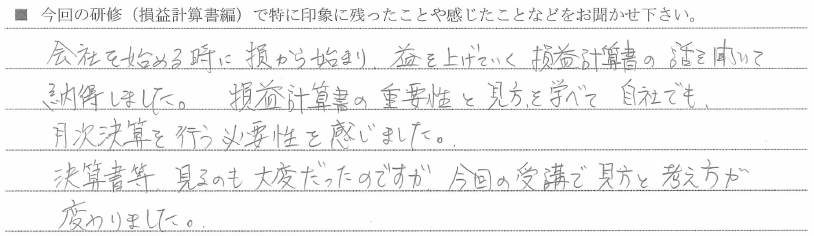 ■ 今回の研修（損益計算書編）で特に印象に残ったことや感じたことなどをお聞かせ下さい。
会社を始める時に損から始まり、益を上げていく損益計算書の話を聞いて
納得しました。 損益計算書の重要性と見方を学べて自社でも、
月次決算を行う必要性を感じました。
決算書等、見るのも大変だったのですが、今回の受講で見方と考え方が
変わりました。